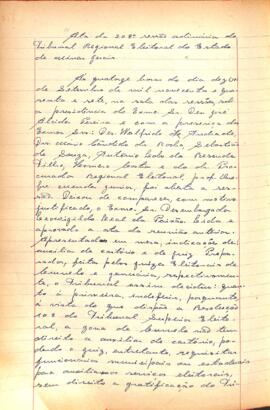 Ata da 208ª sessão ordinária do
Tribunal Regional Eleitoral do Estado
de Minas Gerais
Às quatorze horas do dia dez
de Setembro de mil novecentos e qua-
renta e sete, na sala das sessões, sob
a presidência do Exmo. Snr. Des. José
Alcides Pereira e com a presença dos
Exmos. Snrs. Des. Walfrido de Andrade,
Dr. Cândido da Rocha, Sebastião
de Souza, Antonio Pedro de Rezende
Filho, Homero Costa e do Pro-
curador Regional Eleitoral, prof.
Junior, foi aberta a ses-
são. Deixou de comparecer, com motivo
justificado, o Exmo. Sr. Desembargador
Leovigildo Leal da Paixão. Lida e
aprovada a ata da reunião anterior.
Apresentadas em mesa, indicações de
auxiliar de cartório e de juiz
feita pelos juizes Eleitorais de
e respectivamente,
o Tribunal assim decidiu: quan-
to à primeira, indeferir, porquanto,
à vista do que dispõe a Resolução
do Tribunal Superior Eleito-
ral, a zona de não tem
direito a auxiliar de cartório, po-
dendo o juiz, entretanto, requisitar
funcionários municipais ou estaduais
para auxiliar os serviços eleitorais,
sem direito a gratificação do Tri-